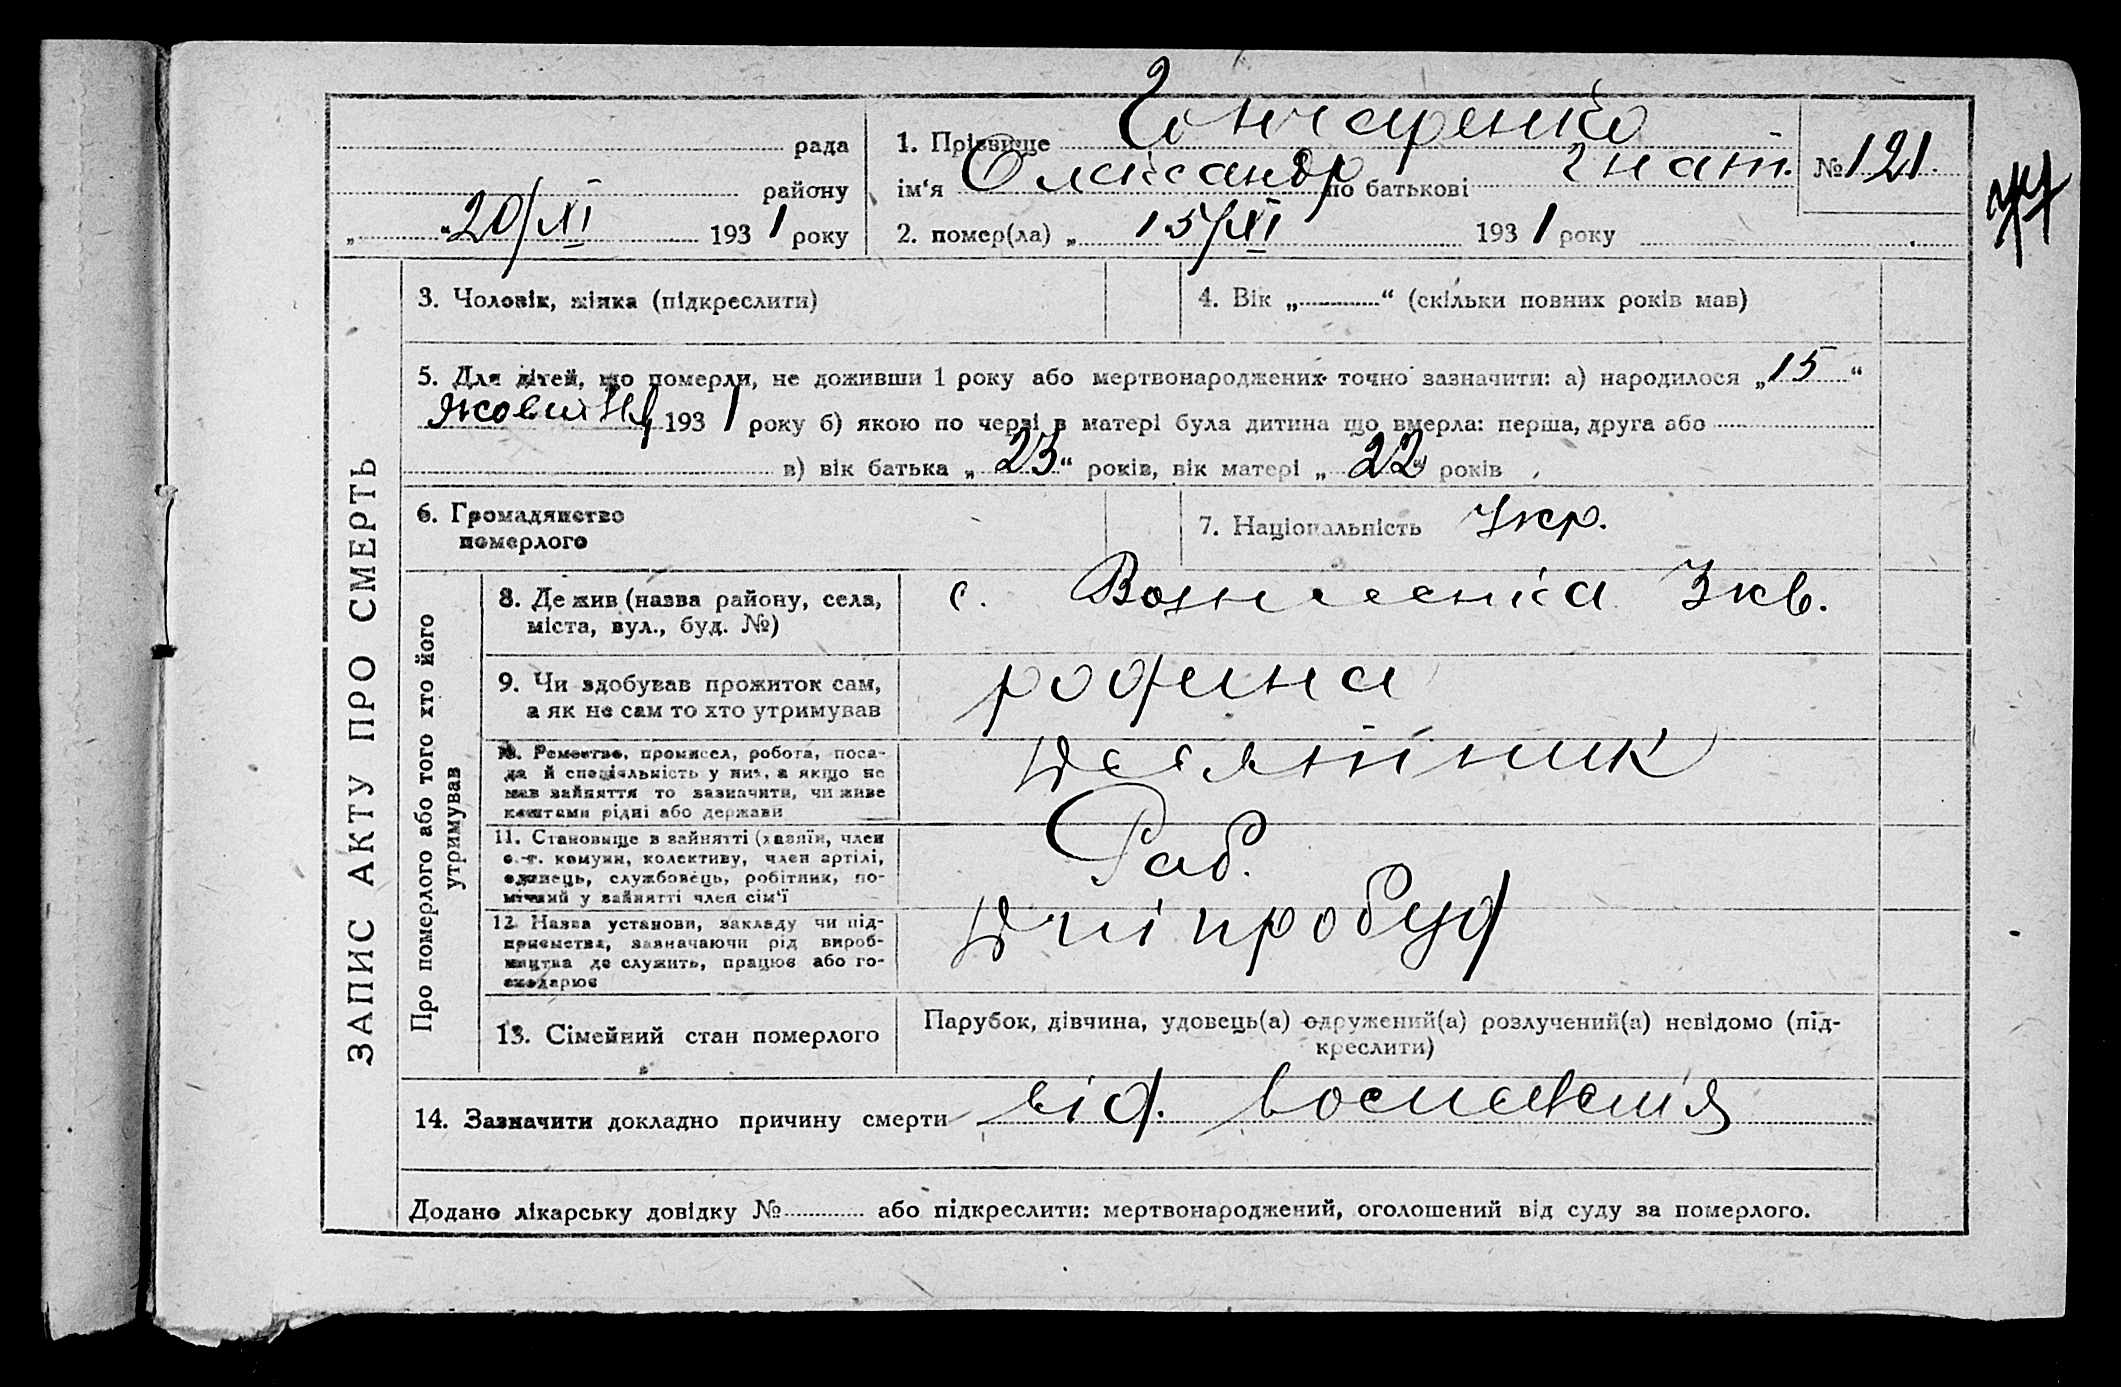 ЗАПИС АКТУ ПРО СМЕРТЬ
рада
району
„ “ 20/XI 1931 року
1. Прізвище Гончаренко
ім‘я Олександр по батькові Гнат.
№ 121
2. помер(ла) „ 15/XI 1931 року
3. Чоловік, жінка (підкреслити)
4. Вік „ “ (скільки повних років мав)
5. Для дітей, що померли, не доживши 1 року або мертвонароджених точно зазначити: а) народилося „15“
1931 року б) якою по черзі в матері була дитина що вмерла: перша, друга або
в) вік батька „23“ років, вік матері „22“ років
6. Громадянство
померлого
7. Національність Укр.
Про померлого або того хто його
утримував
8. Де жив (назва району, села,
міста, вул., буд. №)
с. Вознесенка 3 кв.
9. Чи здобував прожиток сам,
а як не сам то хто утримував
родина
10. Ремество, промисел, робота, поса-
да й спеціяльність у них, а якщо не
мав зайняття то зазначити, чи живе
коштами рідні або держави
Десятник
11. Становище в зайнятті (хазяїн, член
с.-г. комуни, колективу, член артілі,
одинець, службовець, робітник, по-
мічний у зайнятті член сім‘ї
Раб.
12. Назва установи, закладу чи під-
приємства, зазначаючи рід вироб-
ництва де служить, працює або го-
сподарює
Дніпробуд
13. Сімейний стан померлого
Парубок, дівчина, удовець(а) одружений(а) розлучений(а) невідомо (під-
креслити)
14. Зазначити докладно причину смерти від.
Додано лікарську довідку № або підкреслити: мертвонароджений, оголошений від суду за померлого.